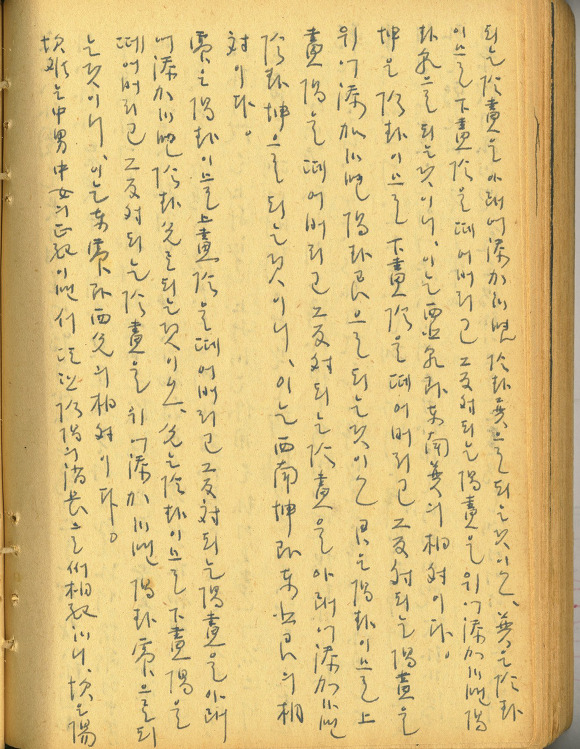 되는 陰畫을 아래에 添加하면 陰卦巽으로 되는 것이고, 巽은 陰卦
이므로 下畫陰을 떼어버리고 그 反對되는 陽畫을 위에 添加하면 陽
卦乾으로 되는 것이니, 이는 西北乾과 東南巽의 相對이다。
坤은 陰卦이므로 下畫陰을 떼어버리고 그 反對되는 陽畫을
위에 添加하면 陽卦艮으로 되는 것이고 艮은 陽卦이므로 上
畫陽을 떼어버리고 그 反對되는 陰畫을 아래에 添加하면
陰卦坤으로 되는 것이니, 이는 西南坤과 東北艮의 相
對이다。
震은 陽卦이므로 上畫陰을 떼어버리고 그 反對되는 陽畫을 아래
에 添加하면 陰卦兌로 되는 것이오, 兌는 陰卦이므로 下畫陽을
떼어버리고 그 反對되는 陰畫을 위에 添加하면 陽卦震으로 되
는 것이니, 이는 東震과 西兌의 相對이다。
坎離는 中男中女의 正配이면서 또한 陰陽의 消長으로써 相配하니, 坎은 陽